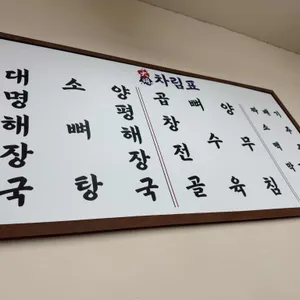 차림표
대명해장국
소뼈탕
양평해장국
곱창전골
뼈수육
양무침
소주